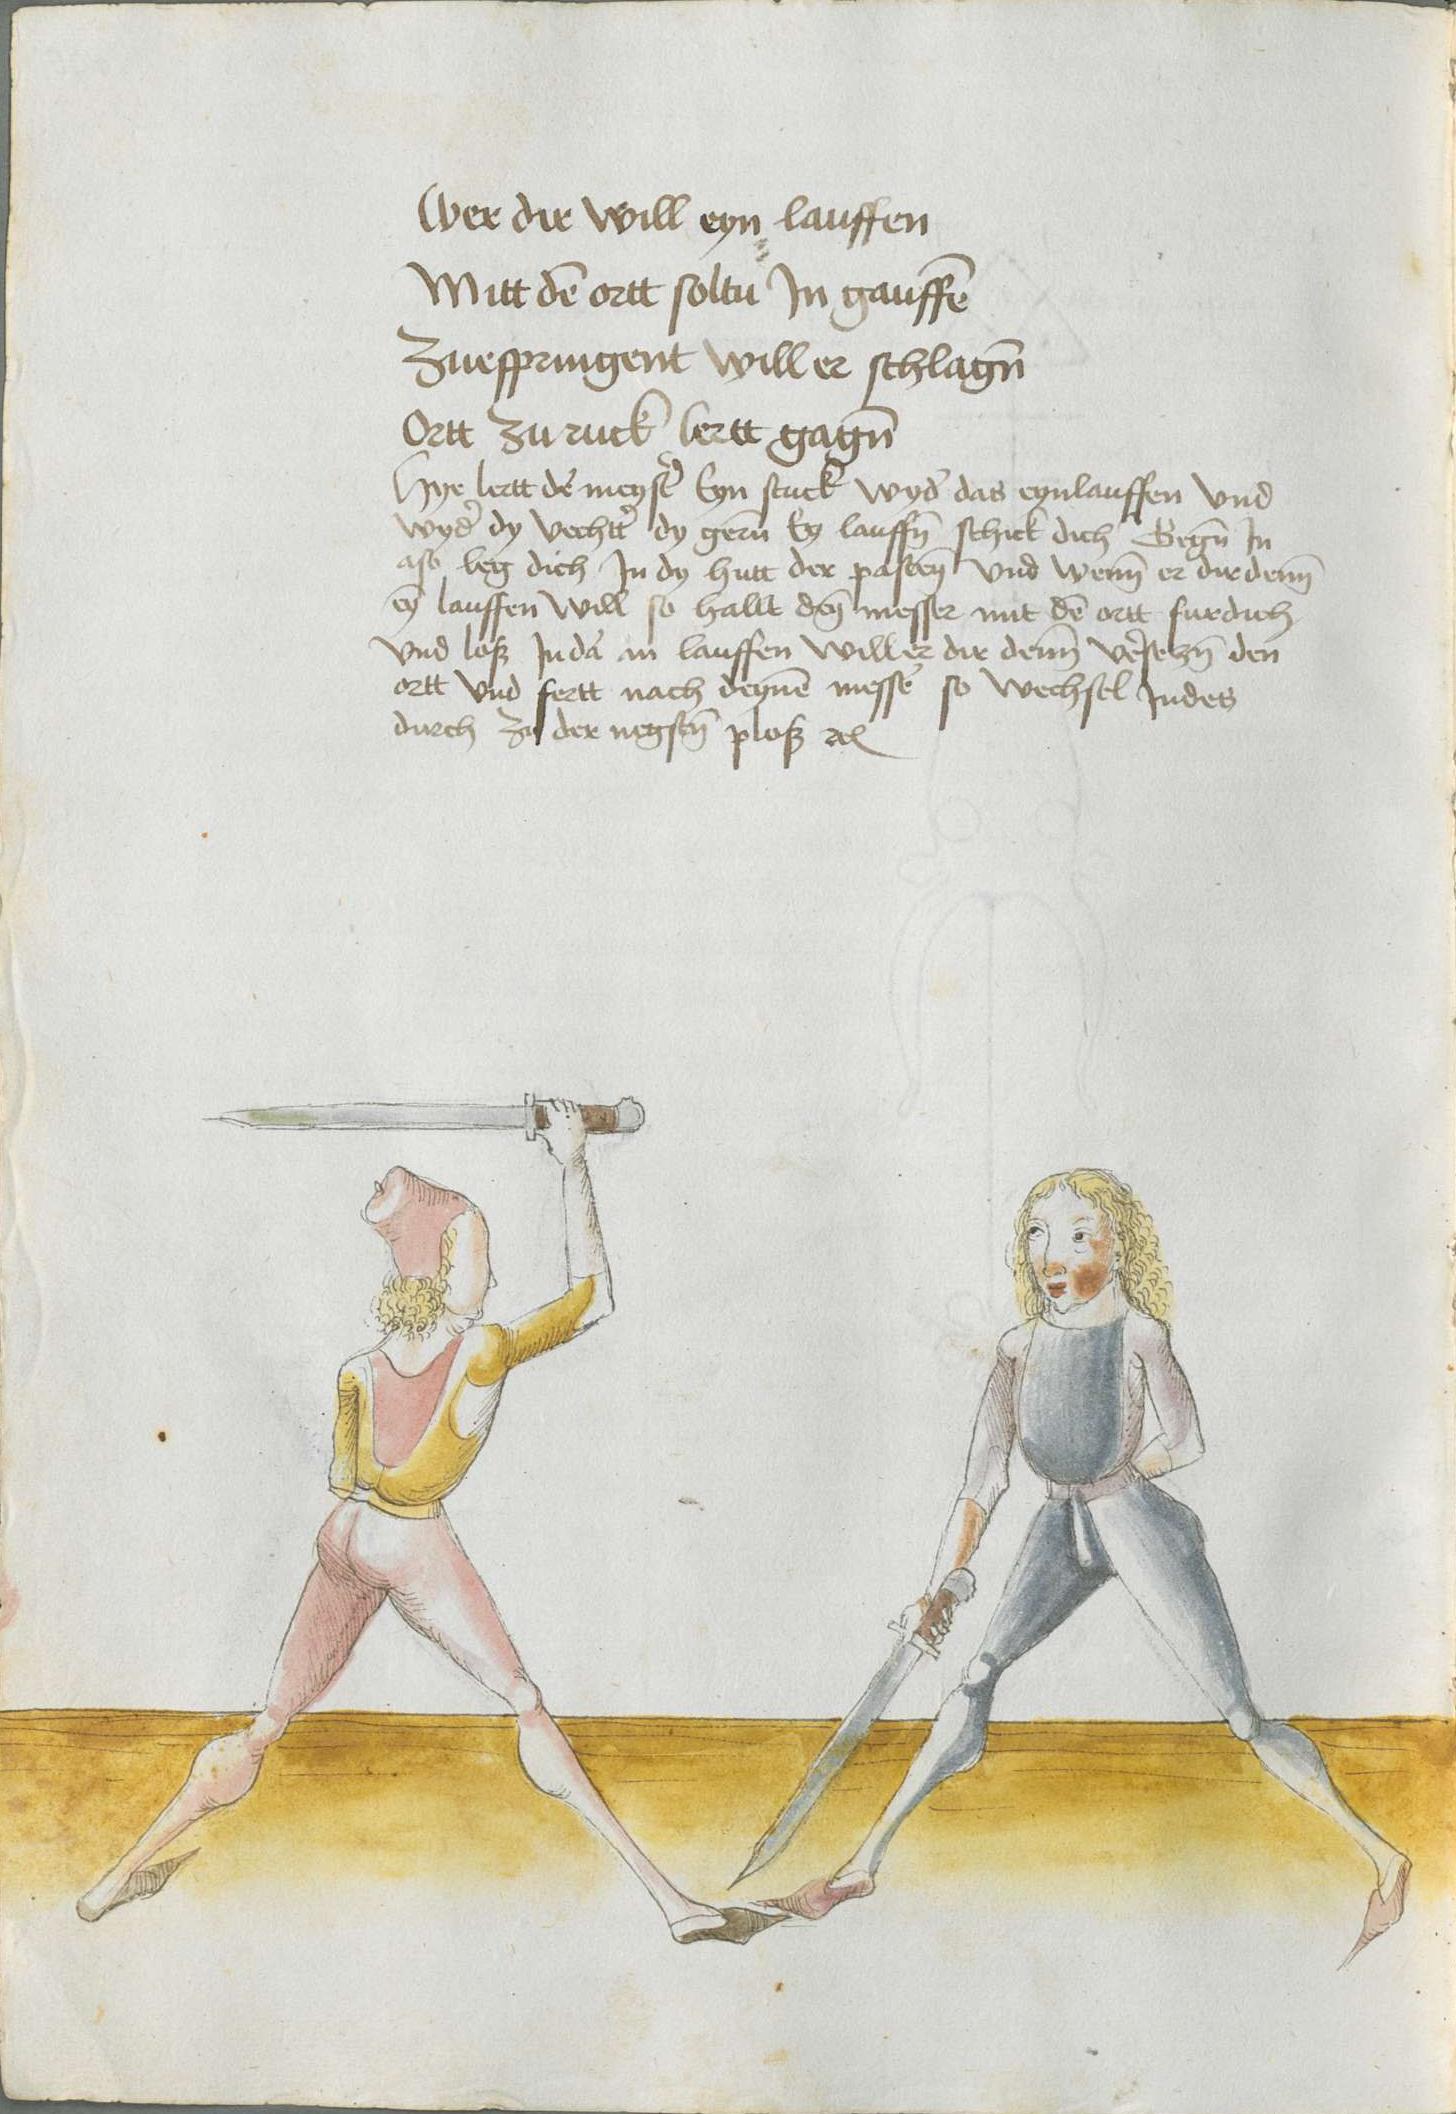 Wer dir will eyn lauffen
Mitt dē ortt soltu Jn gauffē
Zuespringent will er schlagn̄
Ortt zu ruck lertt gagn̄
Hye lertt dē meyst̉ Eyn stuck wyd̉ das eynlauffen vnd
wyd̉ dy vechtt̉ dy gern̄ Ey lauffn̄ schick dich Gegn̄ Jn
aso leg dich Jn dy hutt der pasteӯ vnd wenn̄ er dir denn̄
eӯ lauffen will so hallt deӯ messer mit dē ortt fur dich
vnd loß Jn dā an lauffen will er dir denn̄ v̉seczn̄ den
ortt vnd fertt nach deynē mess̉ so wechsel Jndes
durch zu der negstn̄ ploß